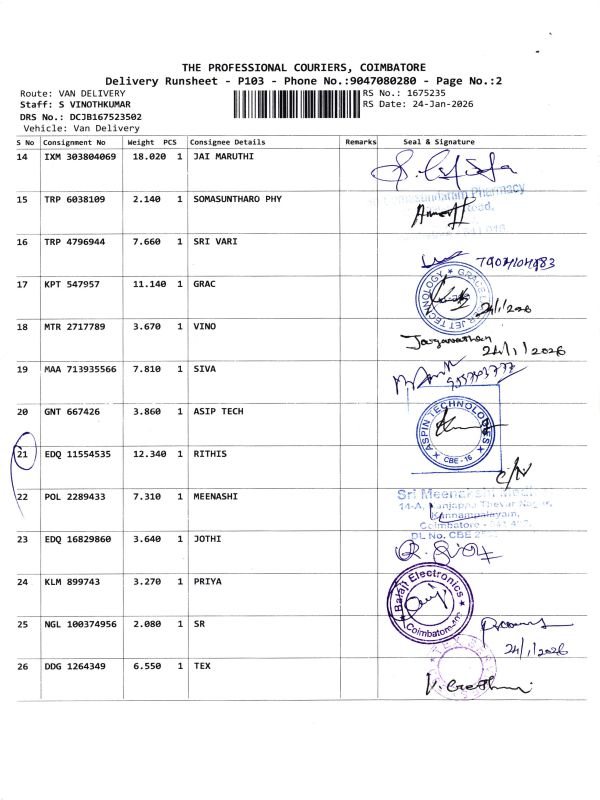 THE PROFESSIONAL COURIERS, COIMBATORE
Delivery Runsheet - P103 - Phone No.:9047080280 - Page No.:2
Route: VAN DELIVERY
RS No.: 1675235
Staff: S VINOTHKUMAR
RS Date: 24-Jan-2026
DRS No.: DCJB167523502
Vehicle: Van Delivery
S No Consignment No Weight PCS Consignee Details Remarks Seal & Signature
14 IXM 303804069 18.020 1 JAI MARUTHI
15 TRP 6038109 2.140 1 SOMASUNTHARO PHY
Pharmacy
16 TRP 4796944 7.660 1 SRI VARI
17 KPT 547957 11.140 1 GRAC
24/1/2026
18 MTR 2717789 3.670 1 VINO
24/1/2026
19 MAA 713935566 7.810 1 SIVA
20 GNT 667426 3.860 1 ASIP TECH
ASPIN TECHNOLOGIES
CBE - 16
21 EDQ 11554535 12.340 1 RITHIS
22 POL 2289433 7.310 1 MEENASHI
Sri Meenakshi
14-A, Nanjappa Thevar Nagar,
Kannampalayam,
Coimbatore -
DL No. CBE
23 EDQ 16829860 3.640 1 JOTHI
24 KLM 899743 3.270 1 PRIYA
Balaji Electronics
Coimbatore
25 NGL 100374956 2.080 1 SR
24/1/2026
26 DDG 1264349 6.550 1 TEX